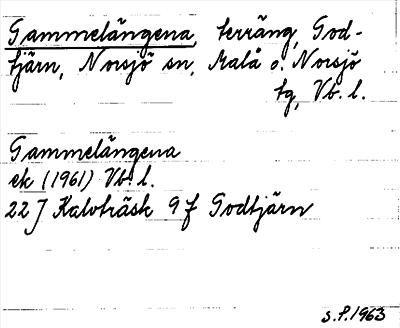 Gammelängena, terräng, God-
tjärn, Norsjö sn, Malå o. Norsjö
tg, Vb. l.
Gammelängena
ek (1961) Vb. l.
22 J Kalvträsk 9 f Godtjärn
S.P. 1963